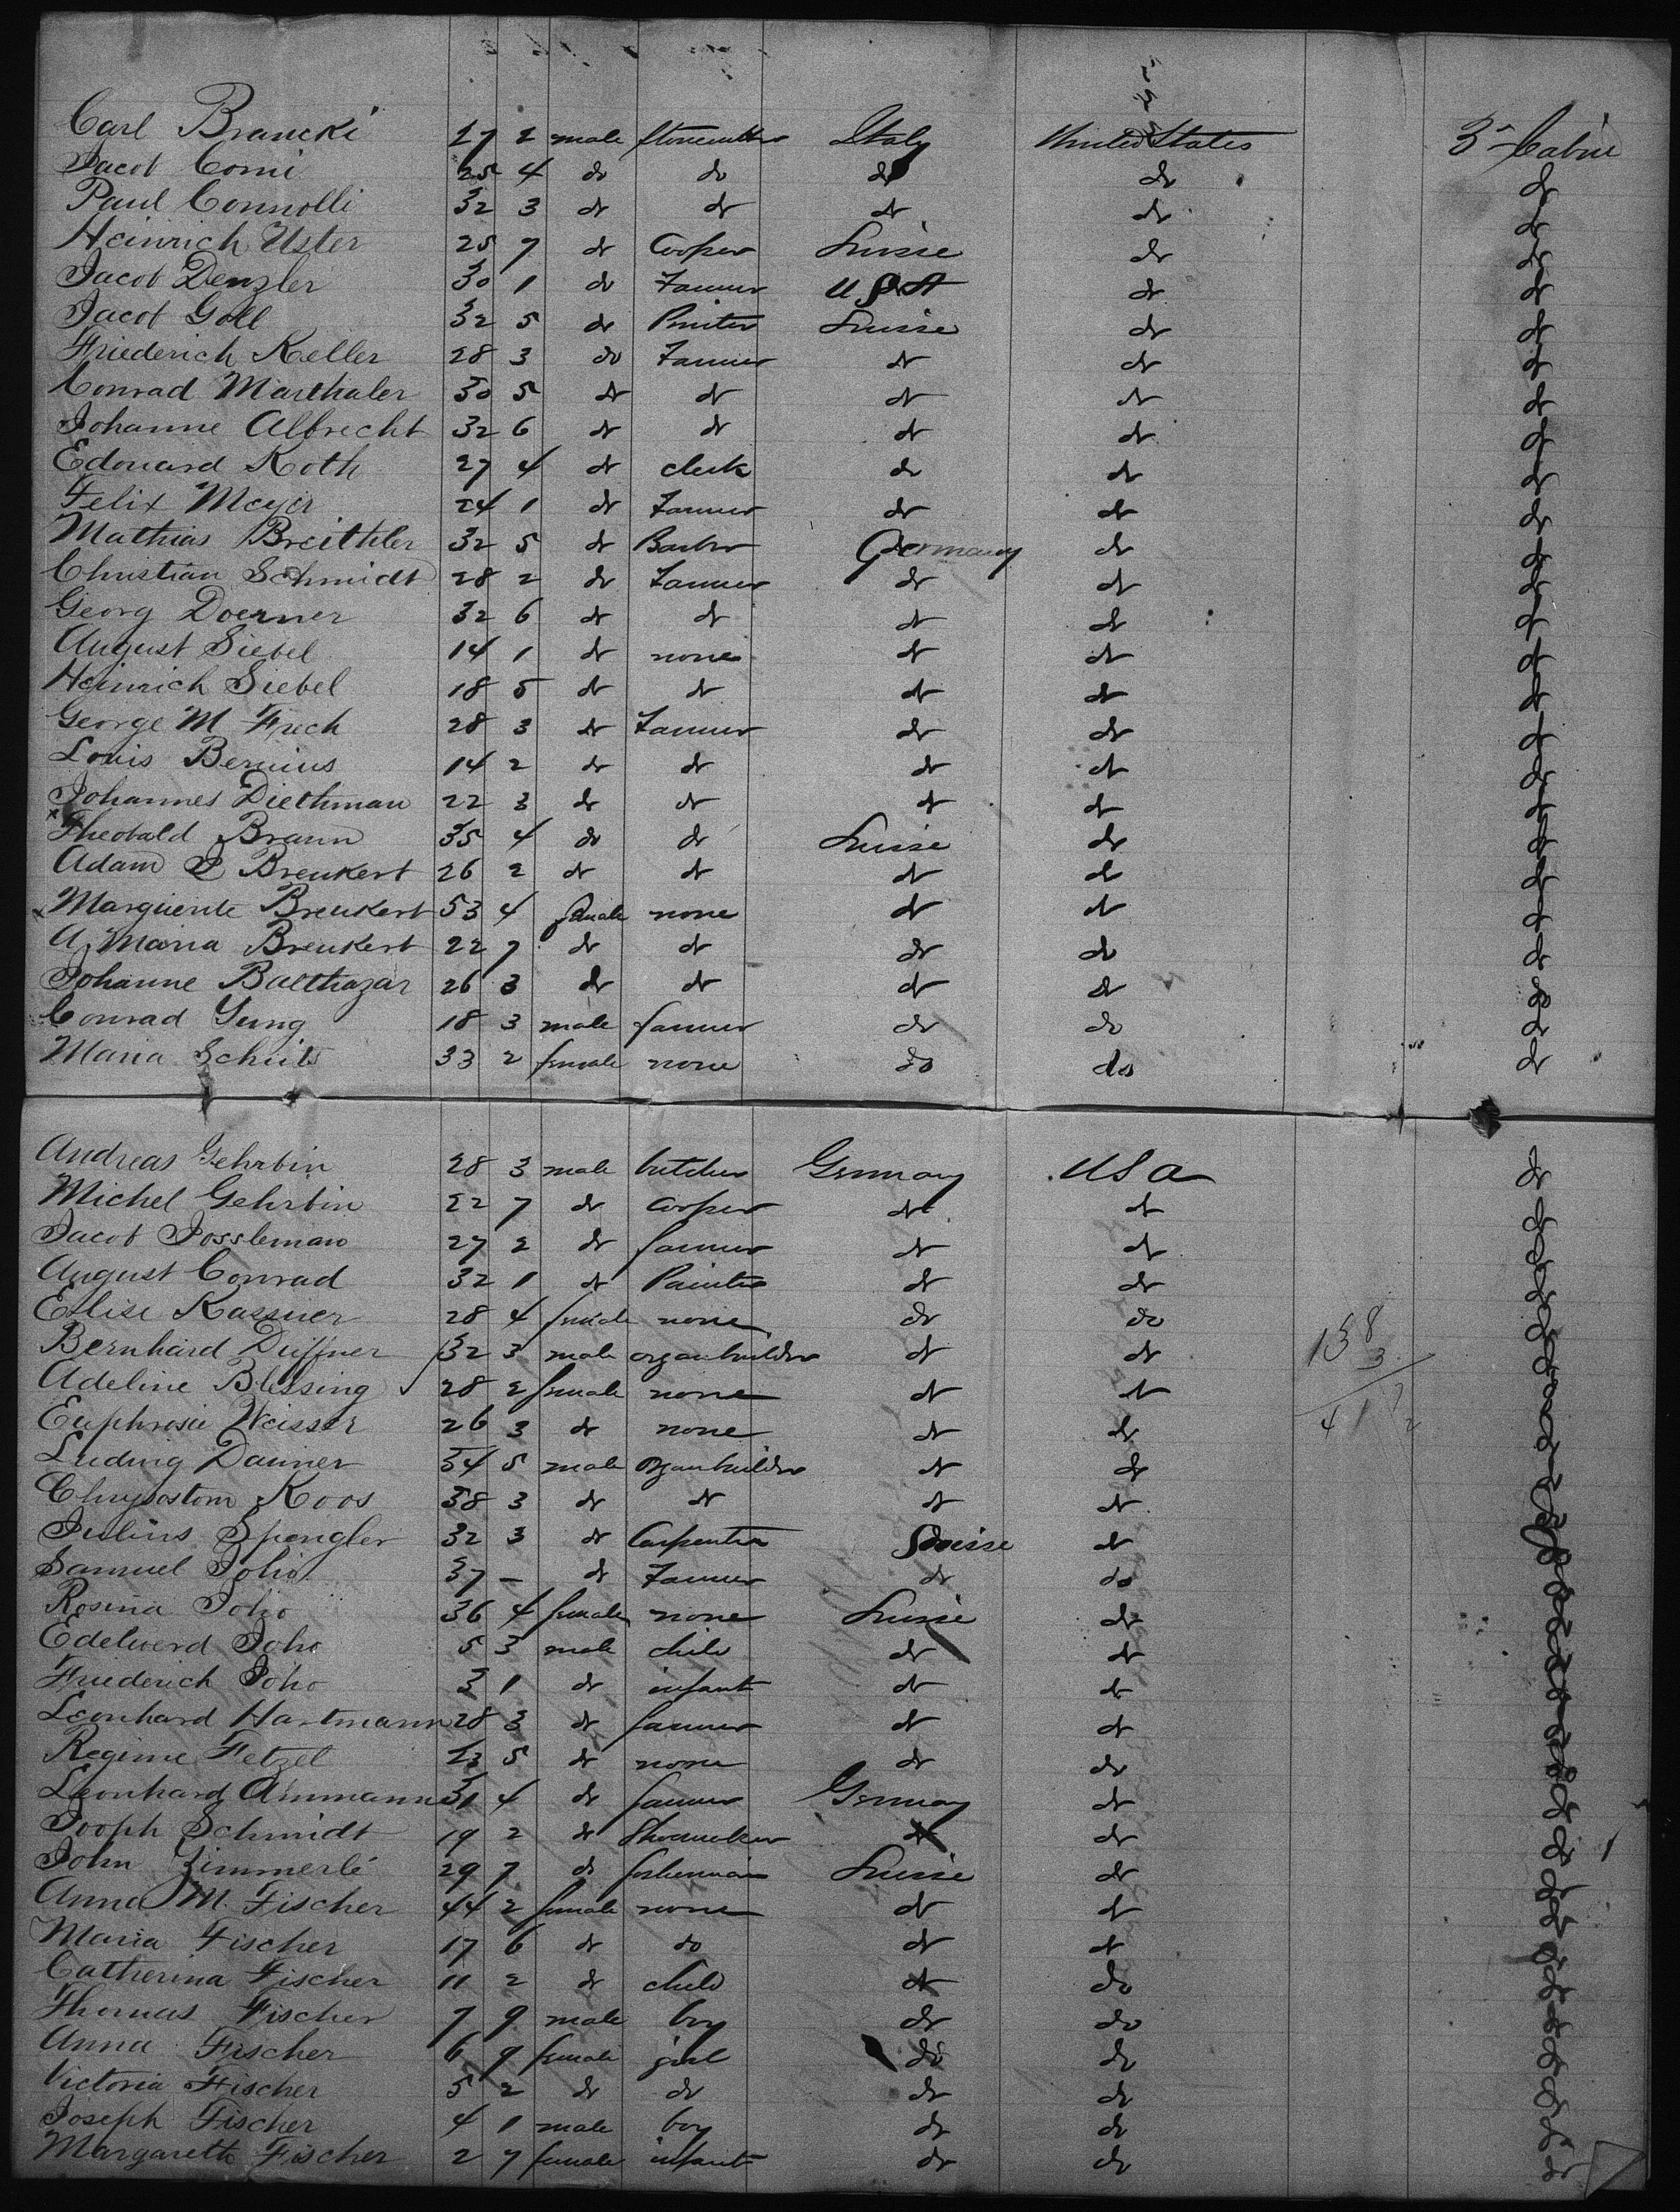 Carl Brancki 27 2 male Stonecutter Italy United States 3d Cabin
Jacob Comi 25 4 do do do do do
Paul Connolli 32 3 do do do do do
Heinrich Uster 25 7 do Cooper Suisse do do
Jacob Denzler 30 1 do Farmer USA do do
Jacob Goll 32 5 do Printer Suisse do do
Friederich Keller 28 3 do Farmer do do do
Conrad Marthaler 30 5 do do do do do
Johanne Albrecht 32 6 do do do do do
Edouard Roth 27 4 do clerk do do do
Felix Meyer 24 1 do Farmer do do do
Mathias Breithler 32 5 do Barber Germany do do
Christian Schmidt 28 2 do Farmer do do do
Georg Doerner 32 6 do do do do do
August Siebel 14 1 do none do do do
Heinrich Siebel 18 5 do do do do do
George M Frech 28 3 do Farmer do do do
Louis Bernius 14 2 do do do do do
Johannes Diethman 22 3 do do do do do
Theobald Braun 35 4 do do Suisse do do
Adam P Breukert 26 2 do do do do do
Marguerite Breukert 53 4 female none do do do
A Maria Breukert 22 7 do do do do do
Johanne Balthazar 26 3 do do do do do
Conrad Yung 18 3 male farmer do do do
Maria Schuts 33 2 female none do do do
Andreas Gehrbin 28 3 male butcher Germany USA do
Michel Gehrbin 22 7 do Cooper do do do
Jacob Jossleman 27 2 do farmer do do do
August Conrad 32 1 do Painter do do do
Elise Kassner 28 4 female none do do do
Bernhard Duffner 32 3 male organbuilder do do 138 do
Adeline Blessing 28 2 female none do do 3 do
Euphrosie Weisser 26 3 do none do do 41 do
Ludwig Dauner 34 5 male organbuilder do do do
Chrysostom Koos 38 3 do do do do do
Julius Spengler 32 3 do Carpenter Suisse do do
Samuel Joho 37 - do Farmer do do do
Rosina Joho 36 4 female none Suisse do do
Edelwerd Joho 5 3 male child do do do
Friederich Joho 3 1 do infant do do do
Leonhard Hartmann 28 3 do farmer do do do
Regime Fetzel 23 5 do none do do do
Leonhard Ammann 31 4 do farmer Germany do do
Jooph Schmidt 19 2 do Shoemaker do do do
John Zimmerlé 29 7 do Suisse do do
Anna M. Fischer 44 2 female none do do do
Maria Fischer 17 6 do do do do do
Catherina Fischer 11 2 do child do do do
Thomas Fischer 7 9 male boy do do do
Anna Fischer 6 9 female girl do do do
Victoria Fischer 5 2 do do do do do
Joseph Fischer 4 1 male boy do do do
Margareth Fischer 2 7 female infant do do do